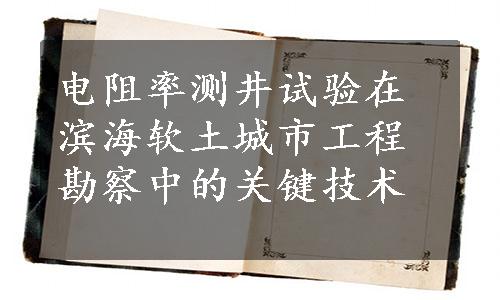 电阻率测井试验在
滨海软土城市工程
勘察中的关键技术